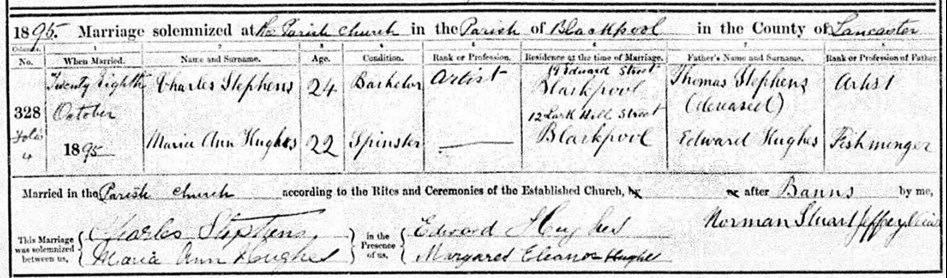 1895. Marriage solemnized at the Parish Church in the Parish of Blackpool in the County of Lancaster
Columns. 1 2 3 4 5 6 7 8
No. When Married. Name and Surname. Age. Condition. Rank or Profession. Residence at the time of Marriage. Father's Name and Surname. Rank or Profession of Father.
328 Twenty Eighth October 1895 Charles Stephens 24 Bachelor Artist Edward Street Blackpool Thomas Stephens (deceased) Artist
Maria Ann Hughes 22 Spinster 12 Lark Hill Street Blackpool Edward Hughes Fishmonger
Married in the Parish Church according to the Rites and Ceremonies of the Established Church, by or after Banns by me,
This Marriage was solemnized between us, Charles Stephens in the Presence of us. Edward Hughes Norman Stuart Jeffrey
Maria Ann Hughes Margaret Eleanor Hughes